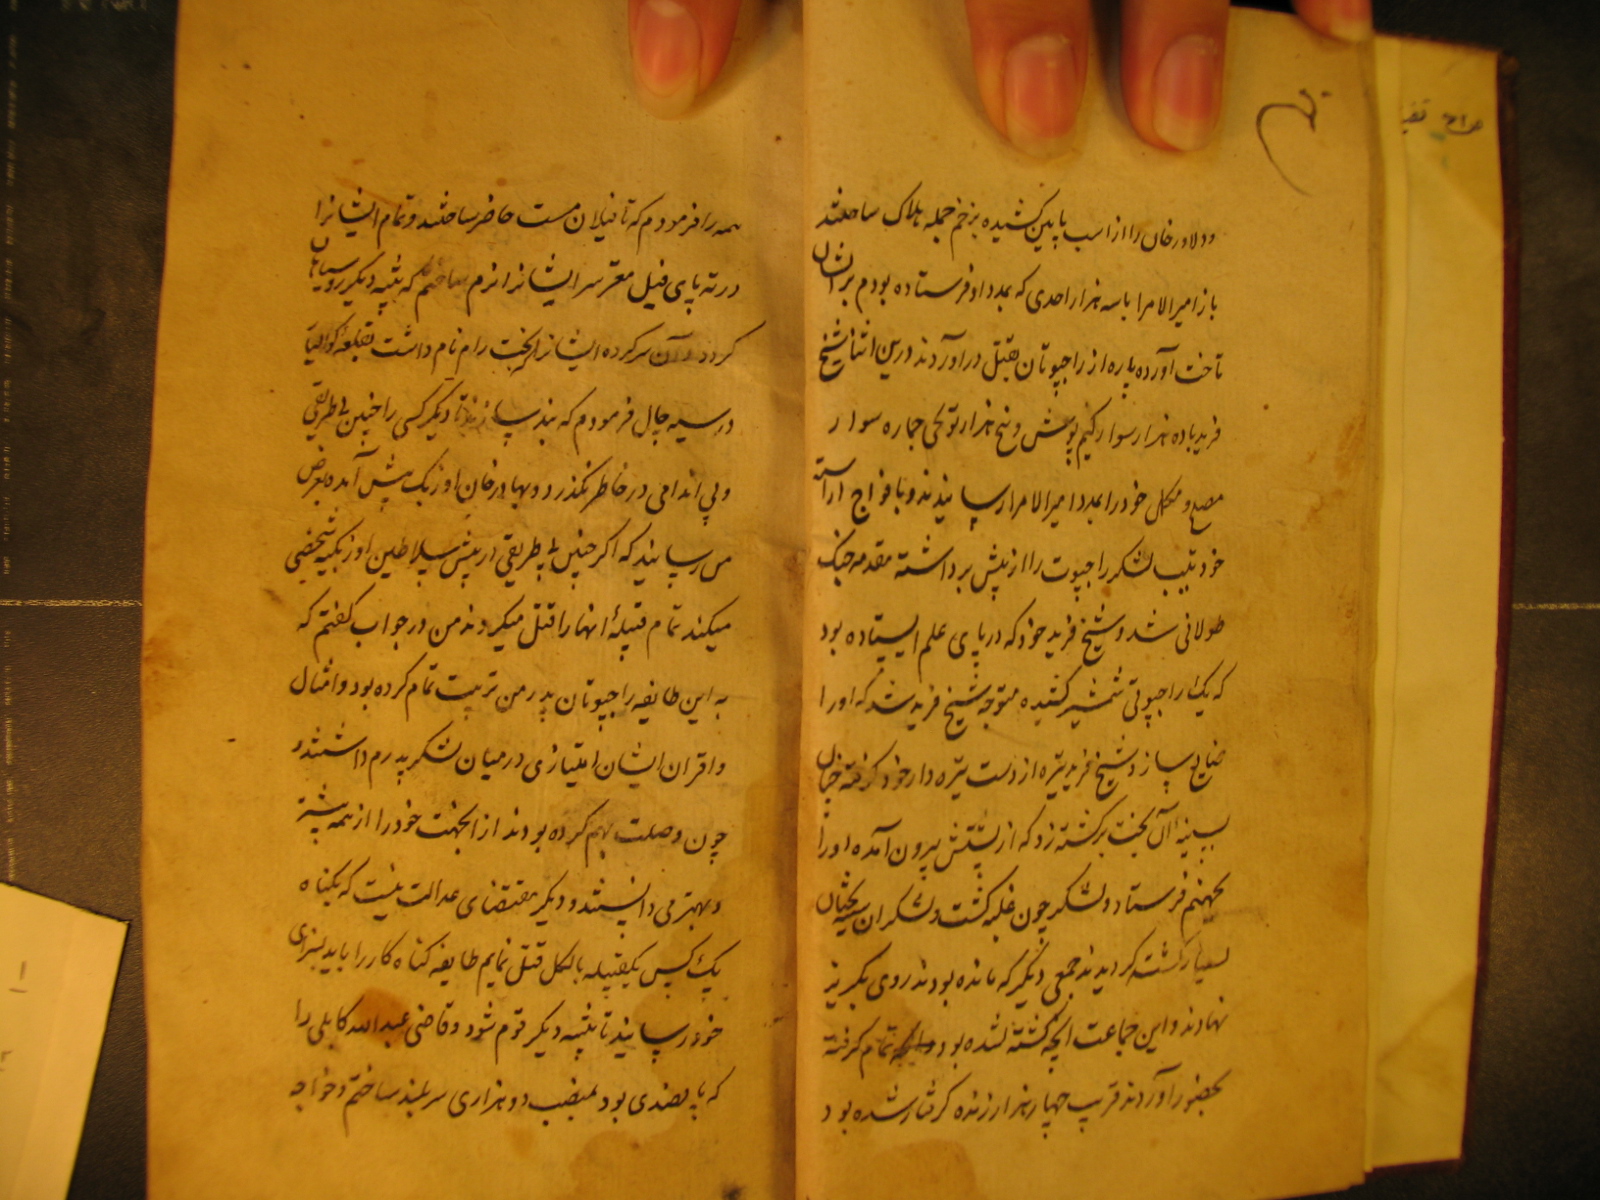 ودلاور خان را از اسب پایین کشیده بزخم جمله هلاک ساختند
باز امیرالامرا با سه هزار احدی که بمدد او فرستاده بودم بر ایشان
تاخت آورده پاره از راجپوتان بقتل در آوردند درین اثنا شیخ
فرید با ده هزار سوار پوش و پنج هزار جماره سوار
و مکمل خود را بمدد امیرالامرا رسانیدند و با فواج آراسته
خود لشکر راجپوت را از پیش برداشته مقدمه جنک
طولانی شد و شیخ فرید خود که در پای علم ایستاده بود
که یک راجپوتی شمشیر کشیده متوجه شیخ فرید شد که او را
ضایع سازد شیخ فرید نیزه از دست نیزه دار خود کرفته چنان
بسینه آن بخت برکشته زد که از پشتش بیرون آمده او را
بجهنم فرستاد و لشکر چون غلبه کشت و لشکر ان سیه بختان
بسیار کشته کردیدند جمعی دیگر که مانده بودند روی بکریز
نهادند و این جماعت انچه کشته نشده بود تمام کرفته
بحضور آوردند قریب چهار هزار زنده کرفتار شده بود
همه را فرمودم که تا فیلان مست حاضر ساختند و تمام ایشانرا
در ته پای فیل سر ایشانرا نرم ساختم که تنبیه دیکر
کردد و آن سرکرده ایشانرا که بخت رام نام داشت بقلعه کوالیار
در سیه چال فرمودم که بند سازند تا دیکر کسی را چنین بی طریقی
و بی اندامی در خاطر نکذرد و بهادر خان اوزبک پیش آمده بعرض
می رسانید که اکر چنین بی طریقی در پیش سلاطین اوزبکیه شخصی
میکند تمام قبیلهٔ انها را قتل میکردند من در جواب کفتم که
به این طایفه راجپوتان پدر من تربیت تمام کرده بود و امثال
و اقران ایشان امتیازی در میان لشکر پدرم داشتند و
چون وصلت بهم کرده بودند از انجهت خود را از همه بیشتر
و بهتر می دانستند و دیکر مقتضای عدالت نیست که بکناه
یک کس یکقبیله بالکل قتل نمایم طایفه کناه کار را باید بسزای
خود رسانید تا تنبیه دیکر قوم شود و قاضی عبدالله کابلی را
که پانصدی بود بمنصب دو هزاری سربلند ساختم و خواجه